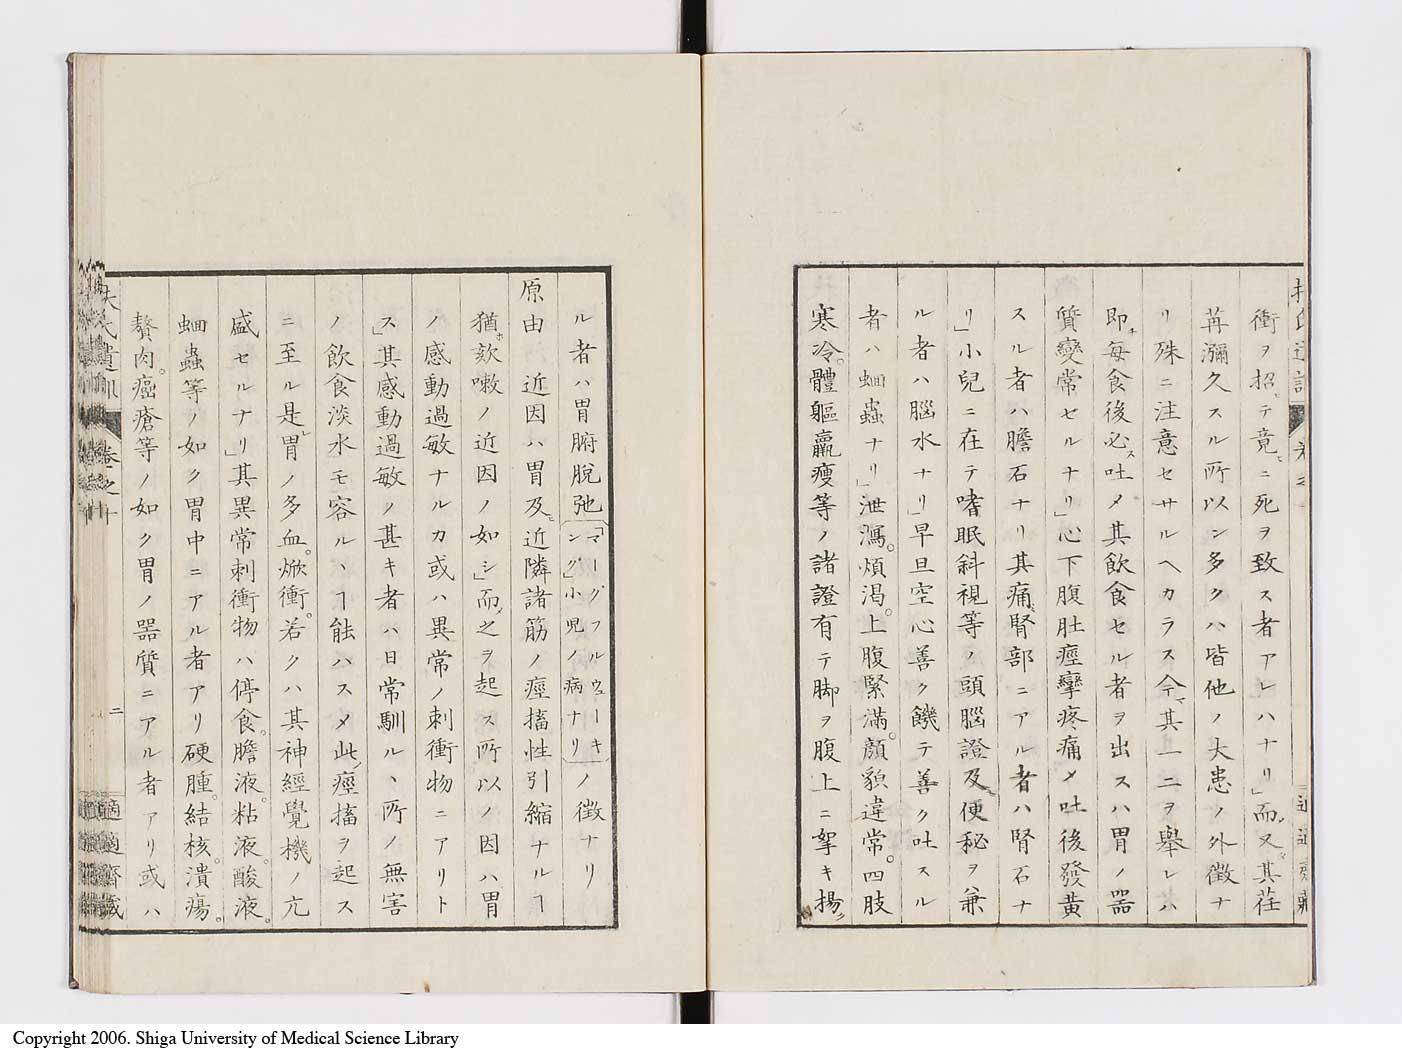 衝ヲ招テ竟ニ死ヲ致ス者アレハナリ」而又其荏
苒瀰久スル所以ン多クハ皆他ノ大患ノ外徴ナ
リ殊ニ注意セサルヘカラス今其一二ヲ舉レハ
即每食後必ス吐メ其飲食セル者ヲ出スハ胃ノ器
質變常セルナリ」心下腹肚痙攣疼痛メ吐後發黃
スル者ハ膽石ナリ其痛腎部ニアル者ハ腎石ナ
リ」小兒ニ在テ嗜眠斜視等ノ頭腦證及便秘ヲ兼
ル者ハ腦水ナリ」早旦空心善ク饑テ善ク吐スル
者ハ蛔蟲ナリ」泄瀉。煩渴。上腹緊滿。顏貌違常。四肢
寒冷。體軀羸瘦等ノ諸證有テ脚ヲ腹上ニ挐キ揚
ル者ハ胃腑脫弛「マーグフルウェーキング」小児ノ病ナリノ徴ナリ
原由 近因ハ胃及近隣諸筋ノ痙搐性引縮ナルヿ
猶欬嗽ノ近因ノ如シ」而之ヲ起ス所以ノ因ハ胃
ノ感動過敏ナルカ或ハ異常ノ刺衝物ニアリト
ス」其感動過敏ノ甚キ者ハ日常馴ルヽ所ノ無害
ノ飲食淡水モ容ルヽヿ能ハスメ此痙搐ヲ起ス
ニ至ル是胃ノ多血。焮衝。若クハ其神經覺機ノ亢
盛セルナリ」其異常刺衝物ハ停食。膽液。粘液。酸液。
蛔蟲等ノ如ク胃中ニアル者アリ硬腫。結核。潰瘍。
贅肉。癌瘡等ノ如ク胃ノ器質ニアル者アリ或ハ
扶氏遺訓 卷之十
二
適適齋藏
Copyright 2006. Shiga University of Medical Science Library